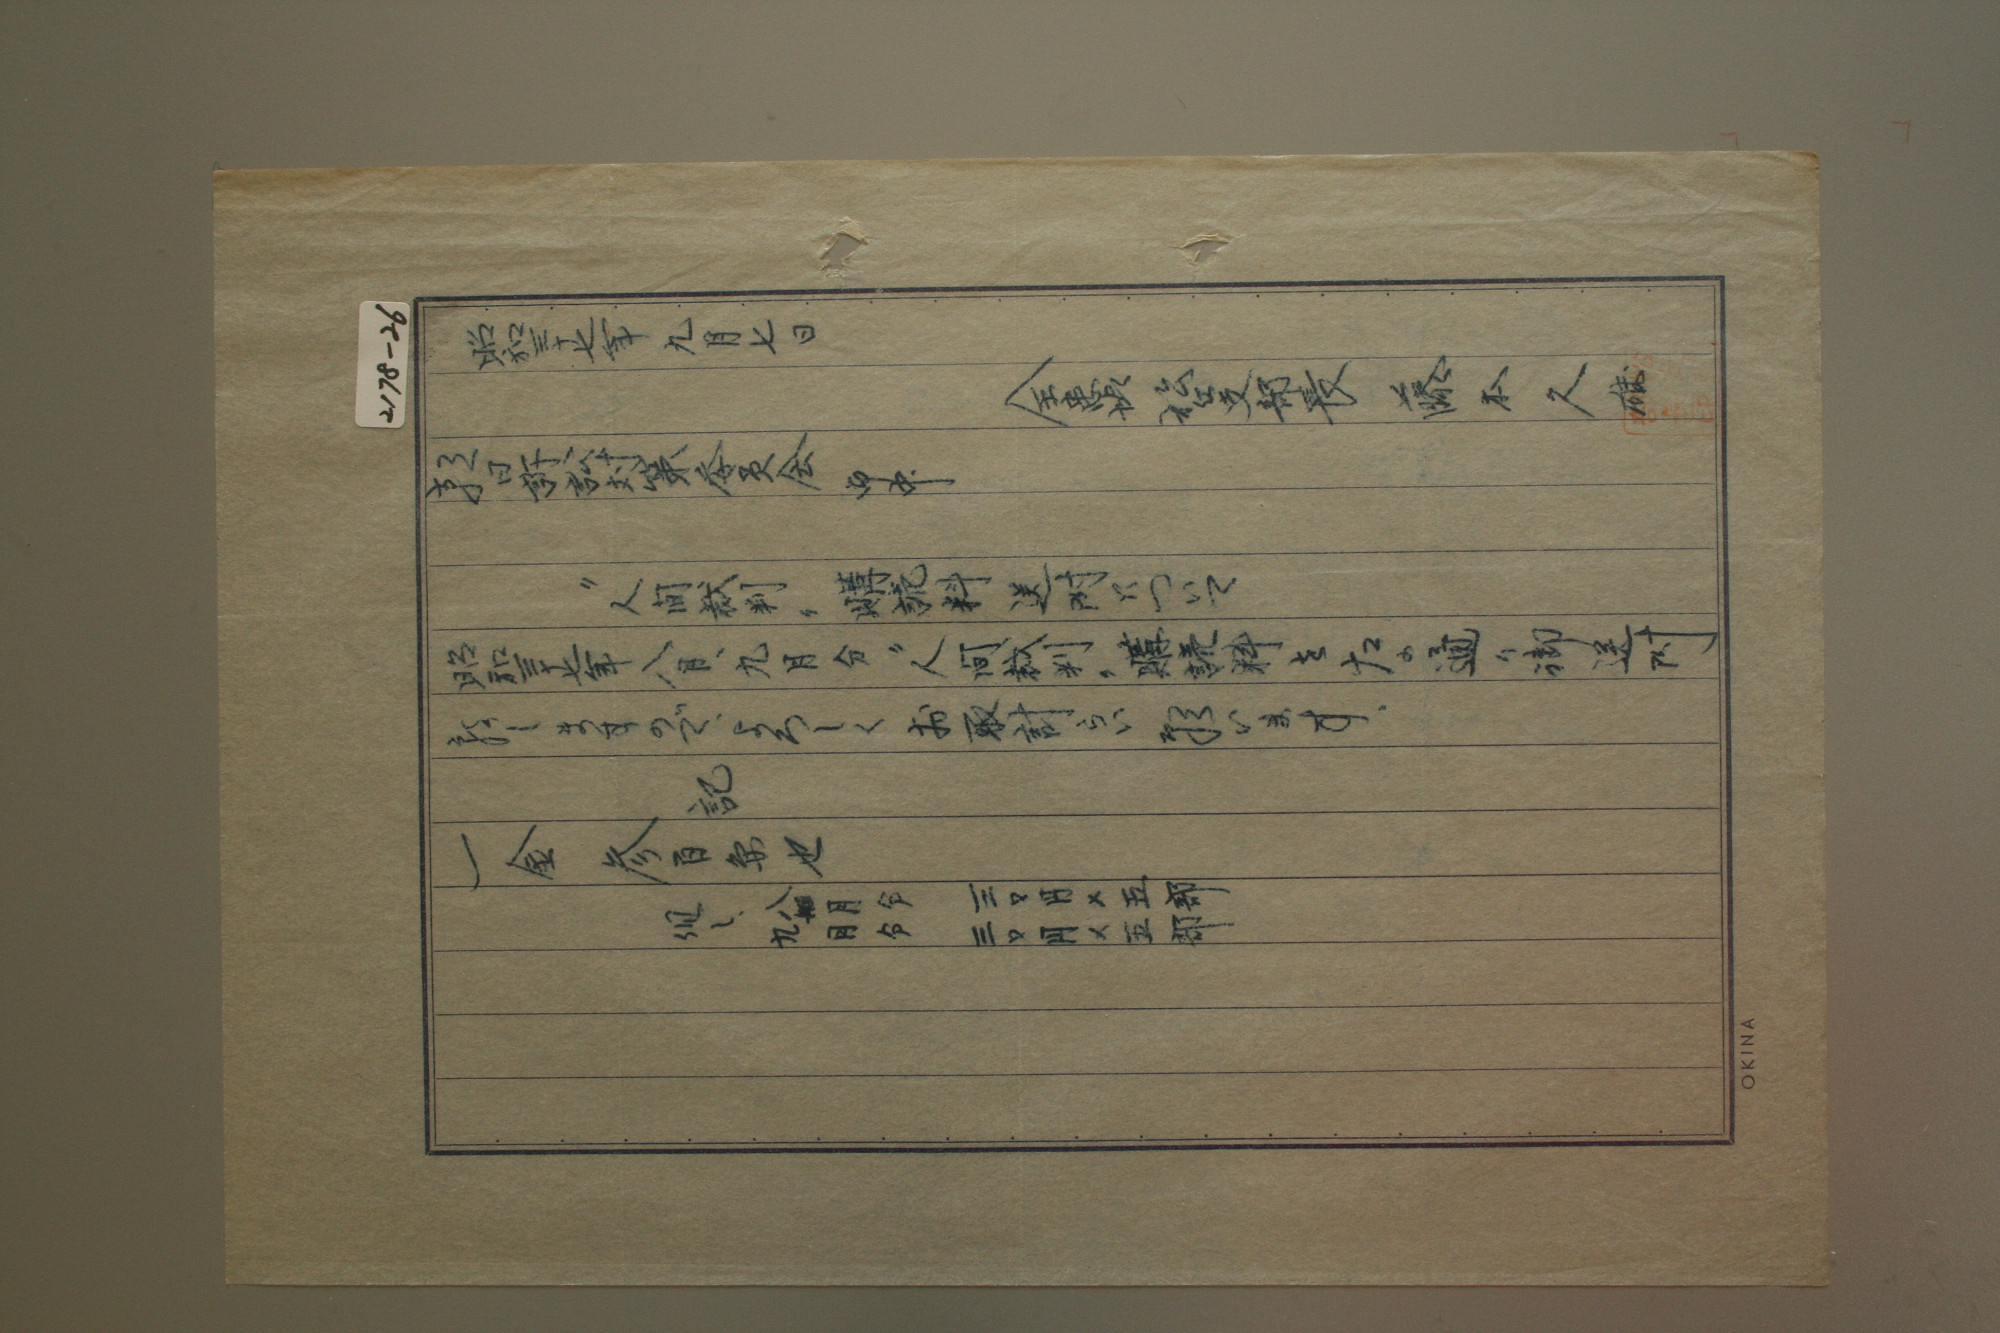 昭和三十七年九月七日
全専売 支部長 藤本久
朝日訴訟対策委員会 御中
〃人間裁判〃購読料送付について
昭和三十七年八月、九月分〃人間裁判〃購読料を左の通り御送付
致しますので、よろしくお取計らい願います。
記
一金 参百円也
但し、八月分 三〇円×五部
九月分 三〇円×五部
OKINA
2178-26